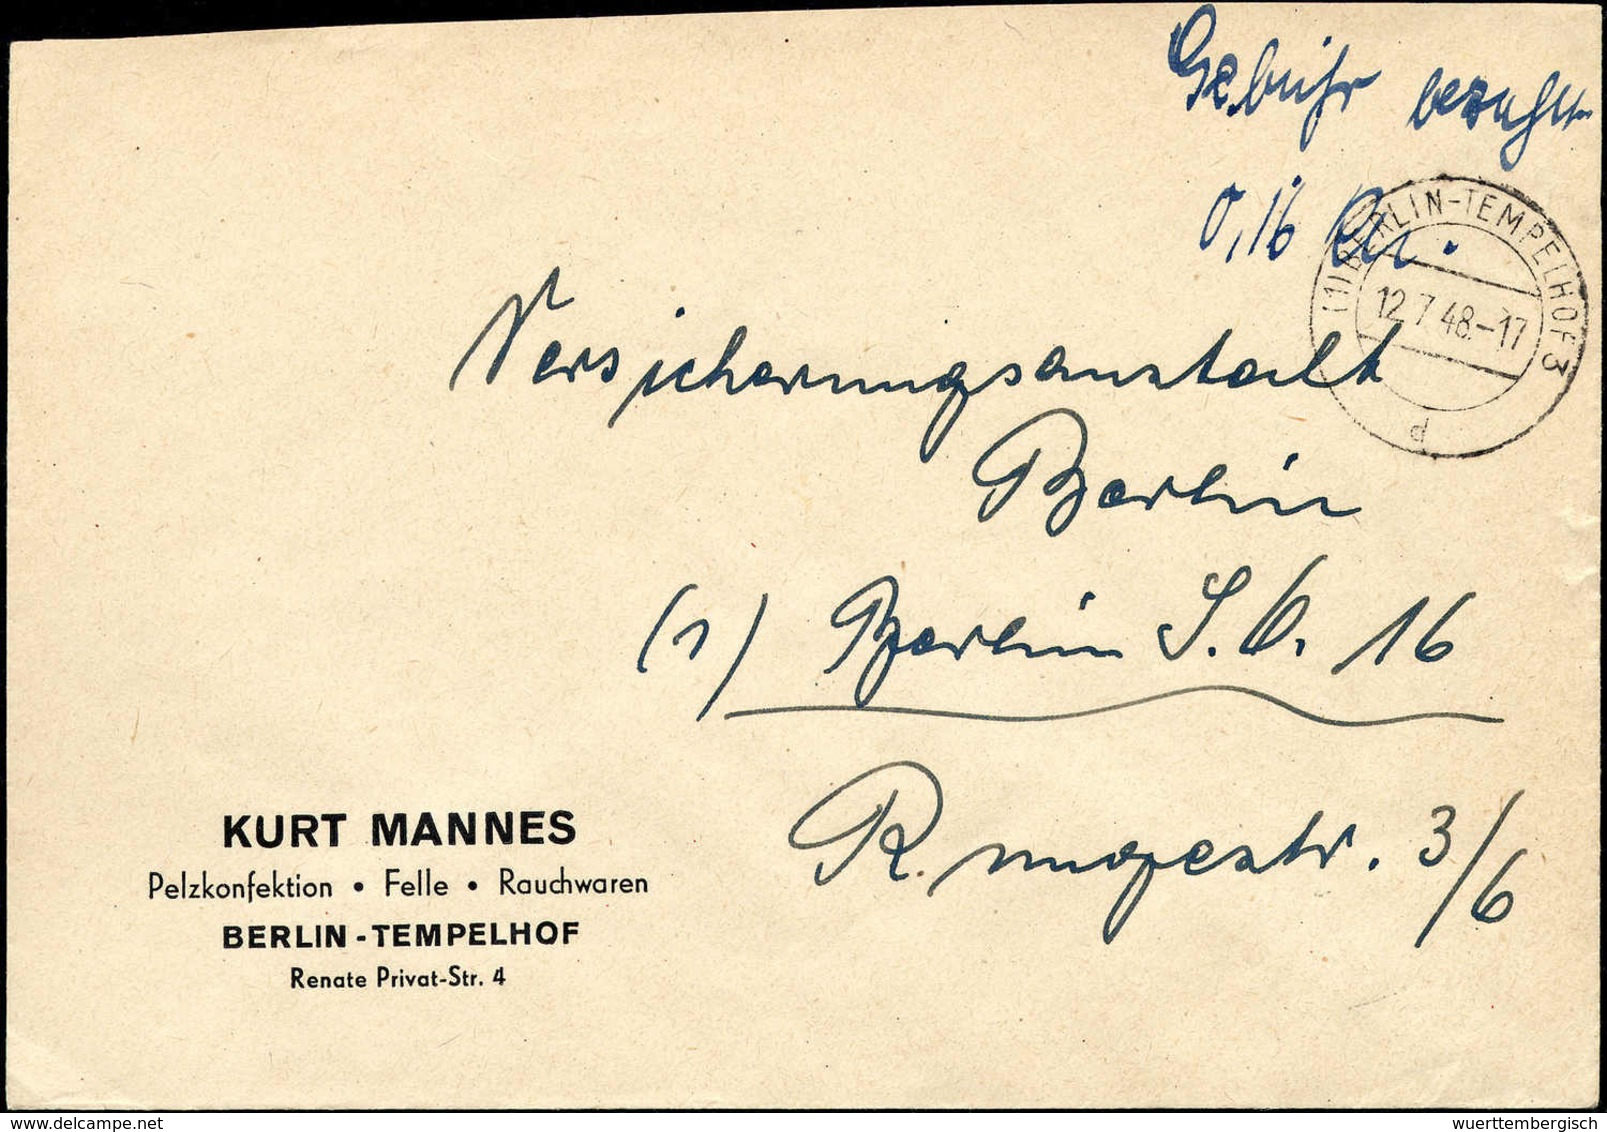 Gebühr bezahlt
0,16 Rm.
(1) BERLIN-TEMPELHOF 3
12.7.48.-17
d
Versicherungsanstalt
Berlin
(1) Berlin S.O. 16
Rungestr. 3/6
KURT MANNES
Pelzkonfektion • Felle • Rauchwaren
BERLIN-TEMPELHOF
Renate Privat-Str. 4
www.delcampe.net
wuerttembergisch